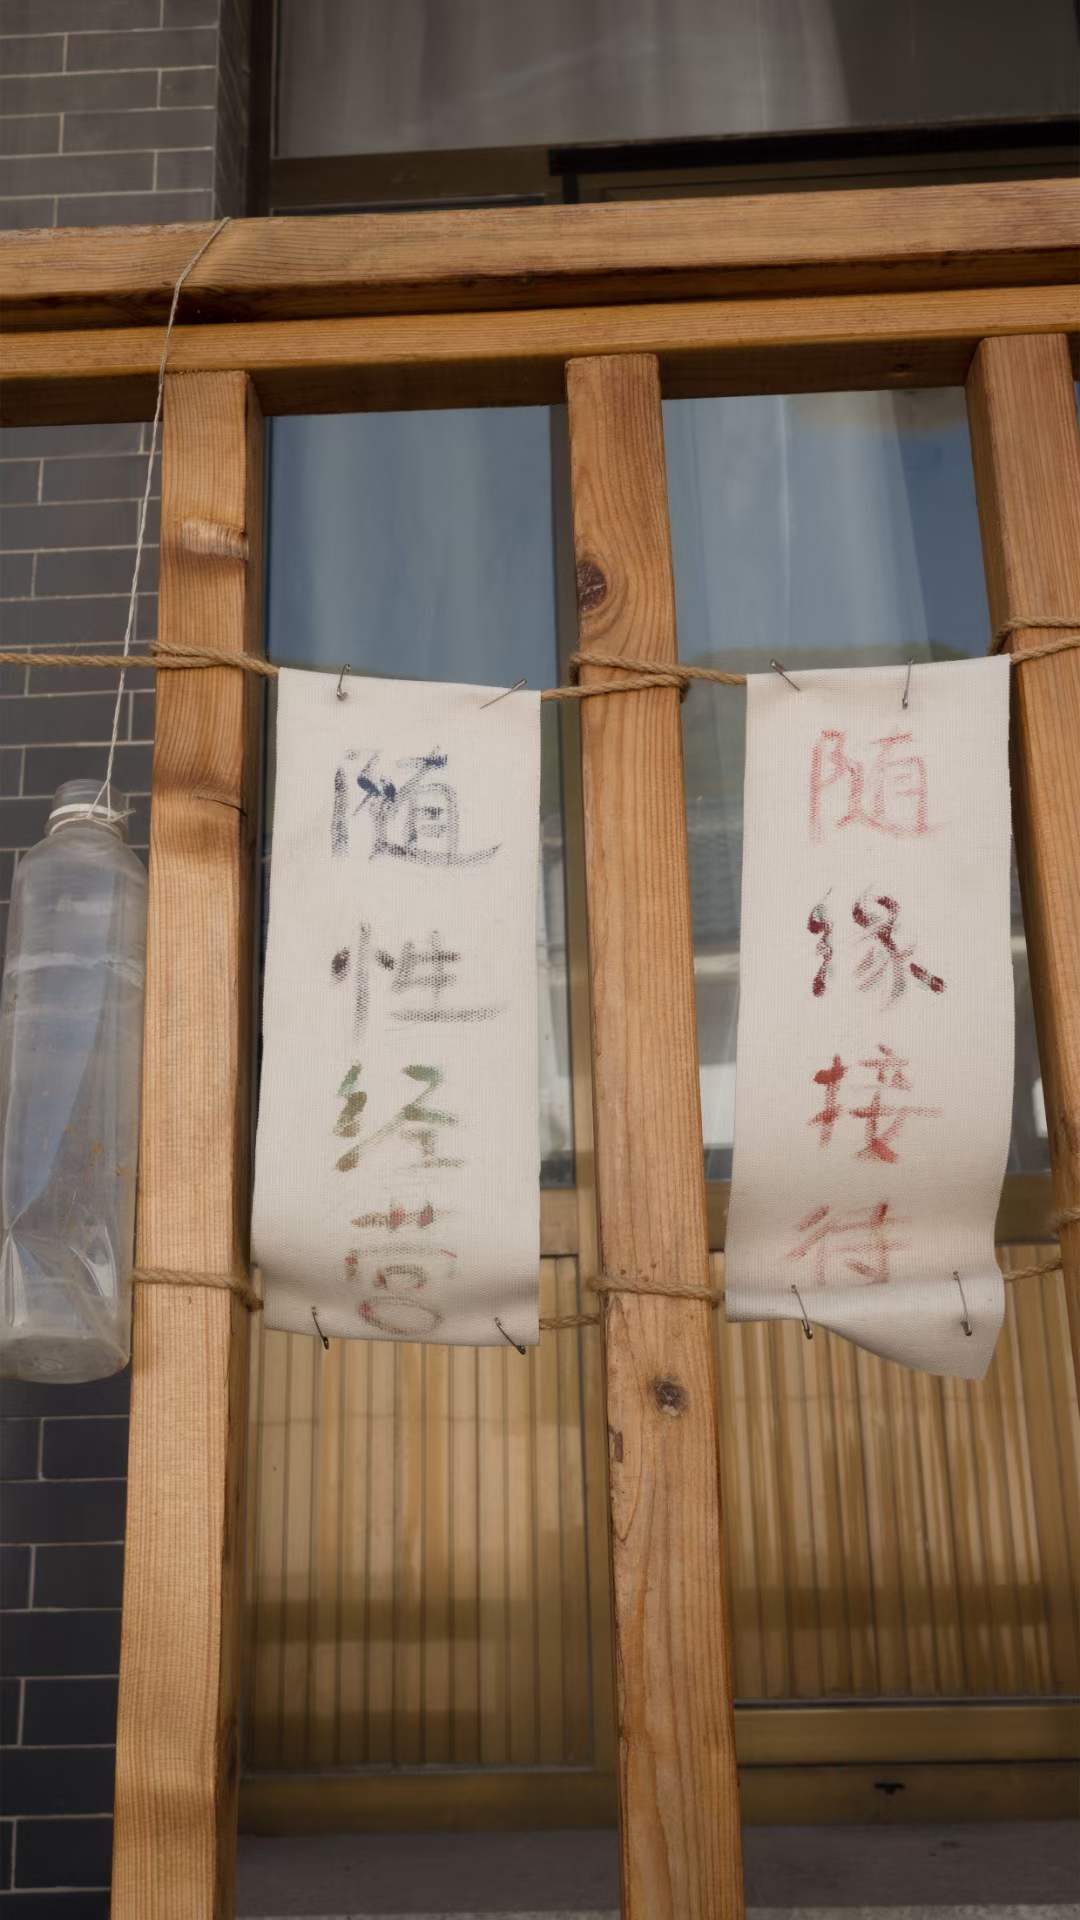 随性经营
随缘接待